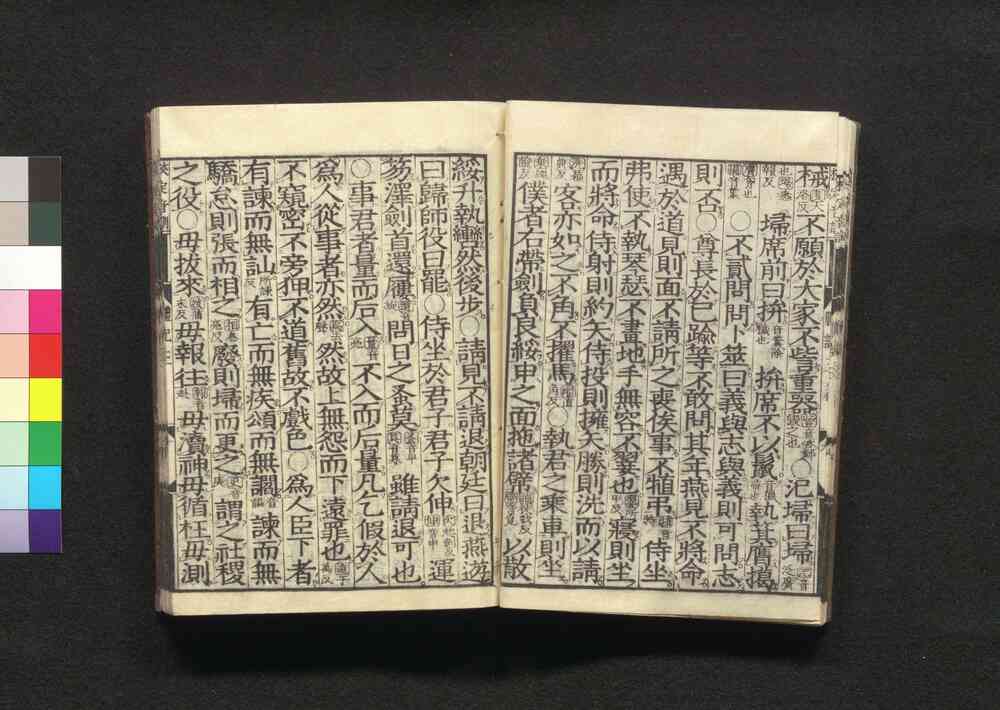 械不願於大家不訾重器〇氾埽曰埽
埽席前曰拚拚席不以鬣執箕膺擖
〇不貳問問卜筮曰義與志與義則可問志
則否〇尊長於己踰等不敢問其年燕見不將命
遇於道見則面不請所之喪俟事不犆弔侍坐
弗使不執琴瑟不畫地手無容不翣也寢則坐
而將命侍射則約矢侍投則擁矢勝則洗而以請
客亦如之不角不擢馬〇執君之乘車則坐
僕者右帶劍負良綏申之面拖諸幦以散
綏升執轡然後步〇請見不請退朝廷曰退燕遊
曰歸師役曰罷〇侍坐於君子君子欠伸運
笏澤劍首還屨問日之蚤莫雖請退可也
〇事君者量而后入不入而后量凡乞假於人
為人從事者亦然然故上無怨而下遠罪也
不窺密不旁狎不道舊故不戲色〇為人臣下者
有諫而無訕有亡而無疾頌而無讇諫而無
驕怠則張而相之廢則埽而更之謂之社稷
之役〇毋拔來毋報往毋瀆神毋循枉毋測